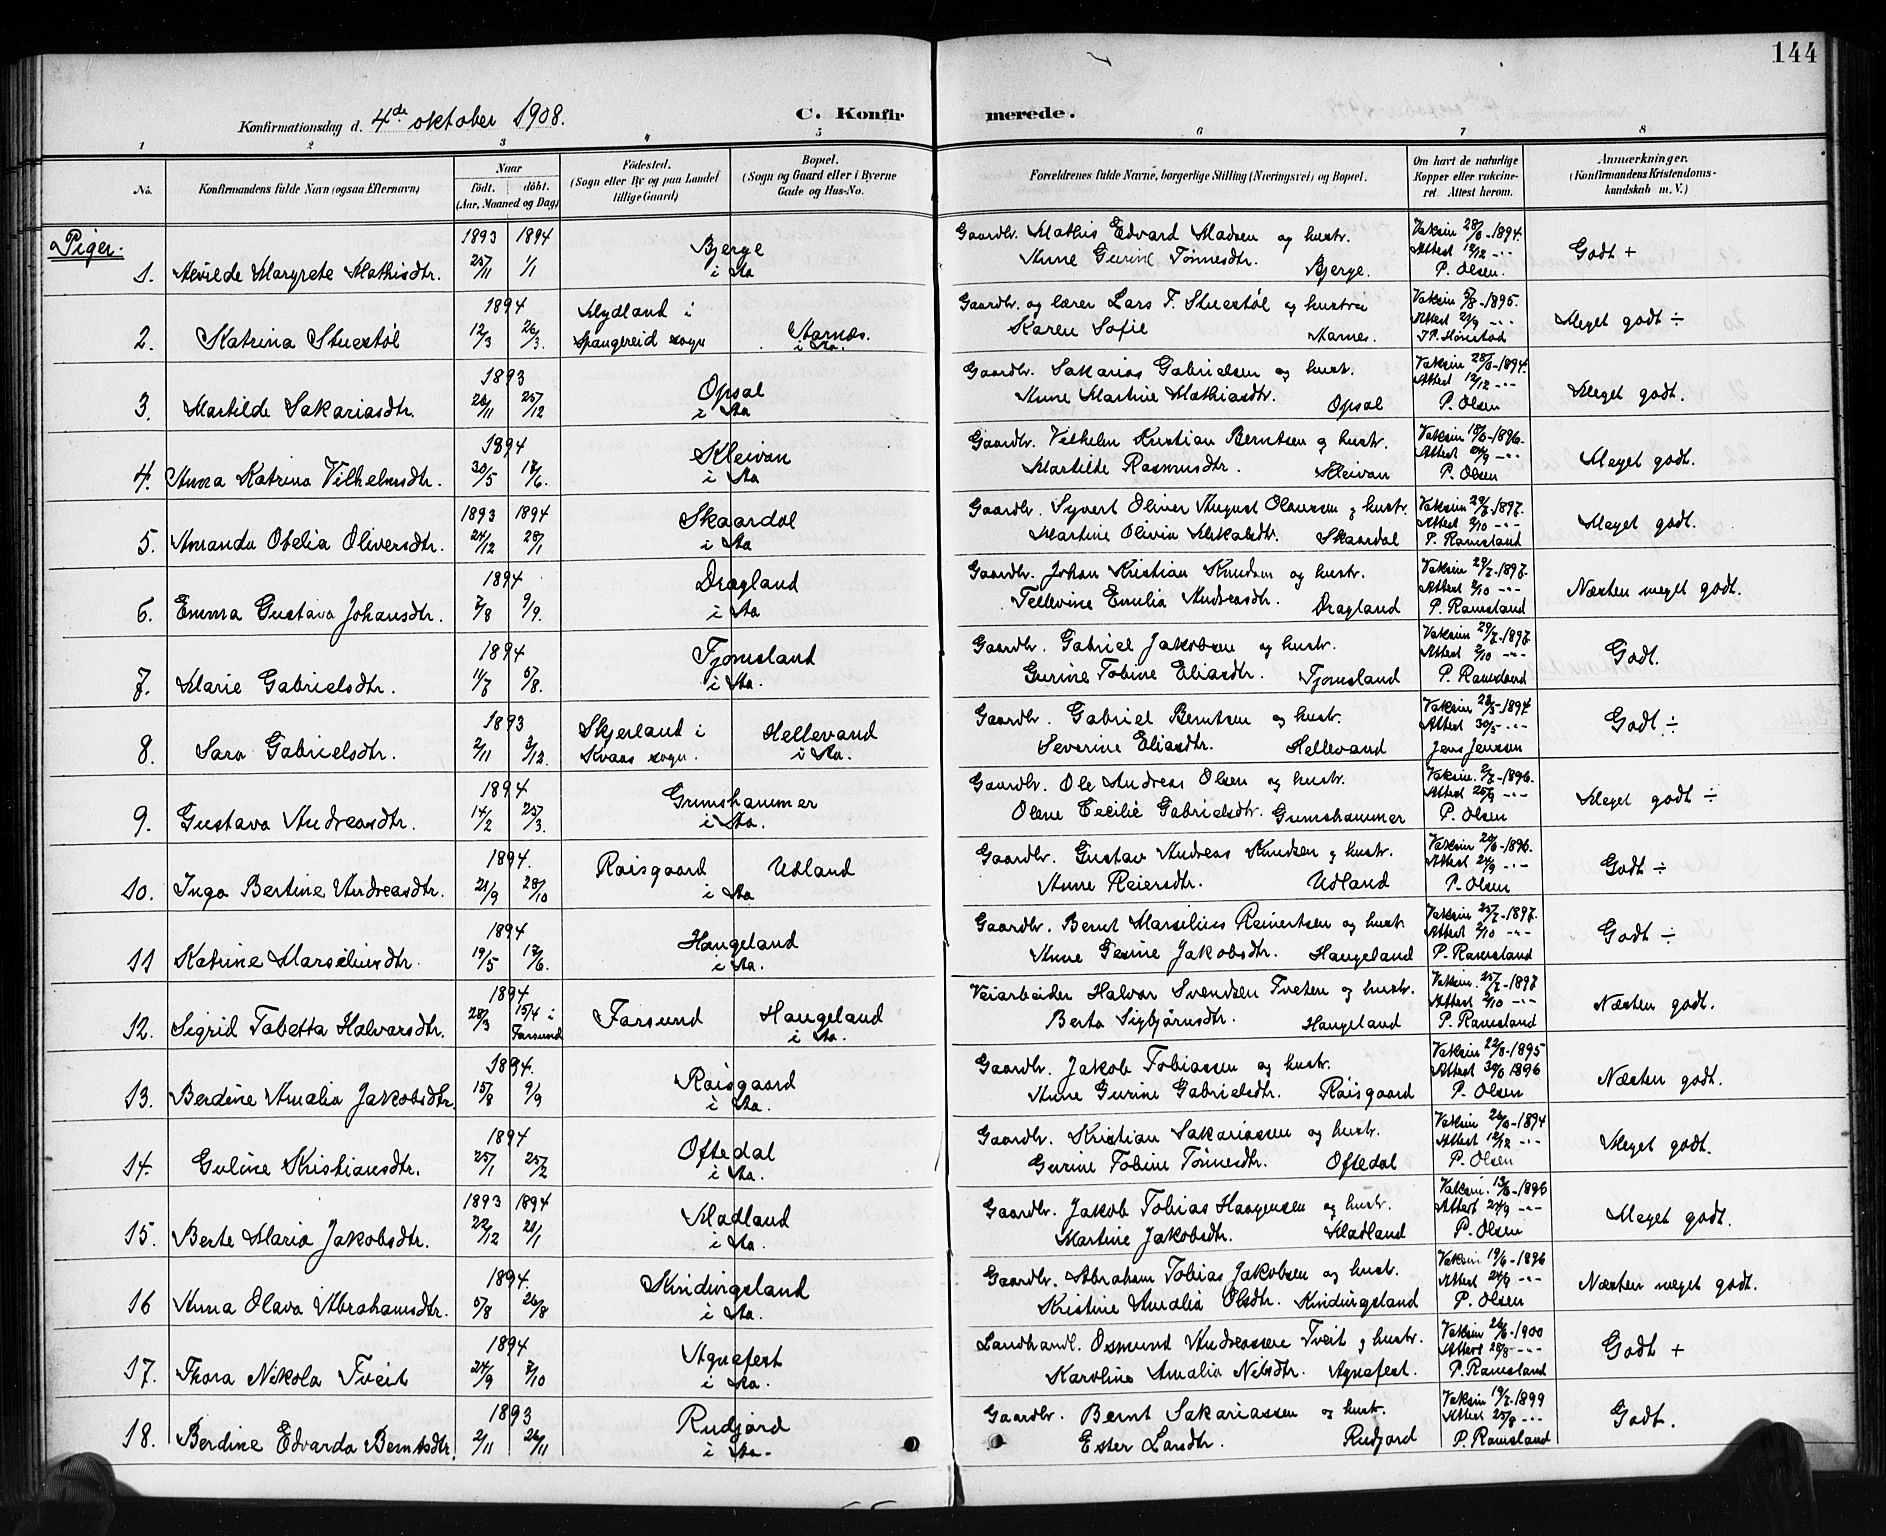 144
Konfirmationsdag d. 4de oktober 1908.
C. Konfirmerede.
1 2 3 4 5 6 7 8
No. Konfirmandens fulde Navn (ogsaa Efternavn)
Naar født. døbt. (Aar, Maaned og Dag)
Fødested. (Sogn eller By og paa Landet tillige Gaard)
Bopæl. (Sogn og Gaard eller i Byerne Gade og Hus-No.
Forældrenes fulde Navne, borgerlige Stilling (Næringsvei) og Bopæl.
Om havt de naturlige Kopper eller vakcineret. Attest herom.
Anmærkninger. (Konfirmandens Kristendomskundskab m. V.)
Piger.
1893 1894 Bjerge Gaardbr. Mathis Edvard Madsen og hustr. Vaksin 28/6-1894.
1. Alvilde Margrete Mathisdtr. 25/11 1/1 i Aa Anne Gurine Tønnesdtr. Bjerge. Attest 12/12 -"- P. Olsen. Godt +
1894 Mydland i Gaardbr. og lærer Lars F. Stuestøl og hustru Vaksin 5/8-1895.
2. Katrina Stuestøl 12/3 26/3. Spangereid sogn Aarnæs. i Aa. Karen Sofie Aarnes. Attest 21/9 -"- Meget godt ÷
1893 Opsal Gaardbr. Sakarias Gabrielsen og hustr. Vaksin 28/6-1894.
3. Martilde Sakariasdtr. 26/11 25/12 i Aa Anne Martine Mathiasdtr. Opsal Attest 12/12 -"- P. Olsen Meget godt.
1894 Kleivan Gaardbr. Vilhelm Kristian Berntsen og hustr. Vaksin 18/6-1896.
4. Anna Katrina Vilhelmsdtr. 30/5 17/6. i Aa Martilde Rasmusdtr. Kleivan Attest 24/9 -"- P. Olsen Meget godt.
1893 1894 Skaardal Gaardbr. Syvert Oliver August Olausen og hustr. Vaksin 29/7-1897.
5. Amanda Otelia Oliversdtr. 24/12 28/1 i Aa Martine Olivia Mikalsdtr. Skaardal Attest 2/10 -"- P. Ramsland Meget godt.
1894 Dragland Gaardbr. Johan Kristian Knudsen og hustr. Vaksin 29/7-1897.
6. Emma Gustava Johansdtr. 7/8 9/9. i Aa Tellevine Emilia Andreasdtr. Dragland Attest 2/10 -"- P. Ramsland Næsten meget godt.
1894 Tjomsland Gaardbr. Gabriel Jakobsen og hustr. Vaksin 29/7-1897
7. Marie Gabrielsdtr. 11/7 5/8. i Aa. Gurine Tobine Eliasdtr. Tjomsland Attest 2/10 -"- P. Ramsland Godt.
1893 Skjerland i Hellevand Gaardbr. Gabriel Berntsen og hustr. Vaksin 22/5-1894
8. Sara Gabrielsdtr. 2/11 3/12. Kvaas sogn. i Aa. Severine Eliasdtr. Hellevand Attest 30/5 -"- Jens Jensen Godt ÷
1894 Grimshammer Gaardbr. Ole Andreas Olsen og hustr. Vaksin. 2/7-1896.
9. Gustava Andreasdtr. 14/2 25/3. i Aa. Olene Cecilie Gabrielsdtr. Grimshammer Attest 25/9 -"- P. Olsen Meget godt ÷
1894. Røisgaard Udland Gaardbr. Gustav Andreas Knudsen og hustr. Vaksin 20/6-1896.
10. Inga Bertine Andreasdtr. 21/9 28/10 i Aa Anne Reiersdtr. Udland Attest 24/9 -"- P. Olsen Godt ÷
1894 Haugeland Gaardbr. Bernt Marselius Reinertsen og hustr. Vaksin 25/7-1897.
11 Katrine Marseliusdtr. 19/5 17/6. i Aa. Anne Gesine Jakobsdtr. Haugeland Attest 2/10 -"- P. Ramsland Godt ÷
1894 Farsund Haugeland Veiarbeider Halvor Svendsen Tveten og hustr. Vaksin. 25/7-1897
12. Sigrid Tabetta Halvorsdtr. 28/3 15/4 i Farsund i Aa. Berta Sigbjørnsdtr. Haugeland Attest 2/10 -"- P. Ramsland Næsten godt.
1894. Røisgaard Gaardbr. Jakob Tobiassen og hustr. Vaksin 22/8-1895
13. Berdine Amalia Jakobsdtr. 15/8 9/9 i Aa. Anne Gurine Gabrielsdtr. Røisgaard Attest 30/6 1896 P. Olsen Næsten godt.
1894 Oftedal Gaardbr. Kristian Sakariassen og hustr. Vaksin 26/6-1894
14. Guline Kristiansdtr. 25/1 25/2 i Aa. Gurine Tobine Tønnesdtr. Oftedal Attest 12/12 -"- P. Olsen Meget godt.
1893 1894 Madland Gaardbr. Jakob Tobias Haagensen og hustr. Vaksin. 13/6-1896
15. Berte Maria Jakobsdtr. 22/12 21/1 i Aa. Martine Jakobsdtr. Madland Attest 24/9 -"- P. Olsen Meget godt.
1894. Kindingsland Gaardbr. Abraham Tobias Jakobsen og hustr. Vaksin 19/6-1896
16 Anna Olava Abrahamsdtr. 5/8 26/8 i Aa. Kristine Amalia Olsdtr. Kindingsland Attest 24/9 -"- P. Olsen Næsten meget godt.
1894 Agnefest Landhandl. Osmund Andreassen Tveit og hustr. Vaksin 26/6-1900
17. Thora Nikola Tveit 24/9 7/10 i Aa. Karoline Amalia Nilsdtr. Agnefest. Attest 28/8 -"- P. Ramsland Godt +
1893 Rudjord Gaardbr. Bernt Sakariassen og hustr. Vaksin 19/7-1899
18. Berdine Edvarda Berntsdtr. 2/11 26/11 i Aa. Ester Larsdtr. Rudjord Attest 25/8 -"- P. Ramsland Godt.